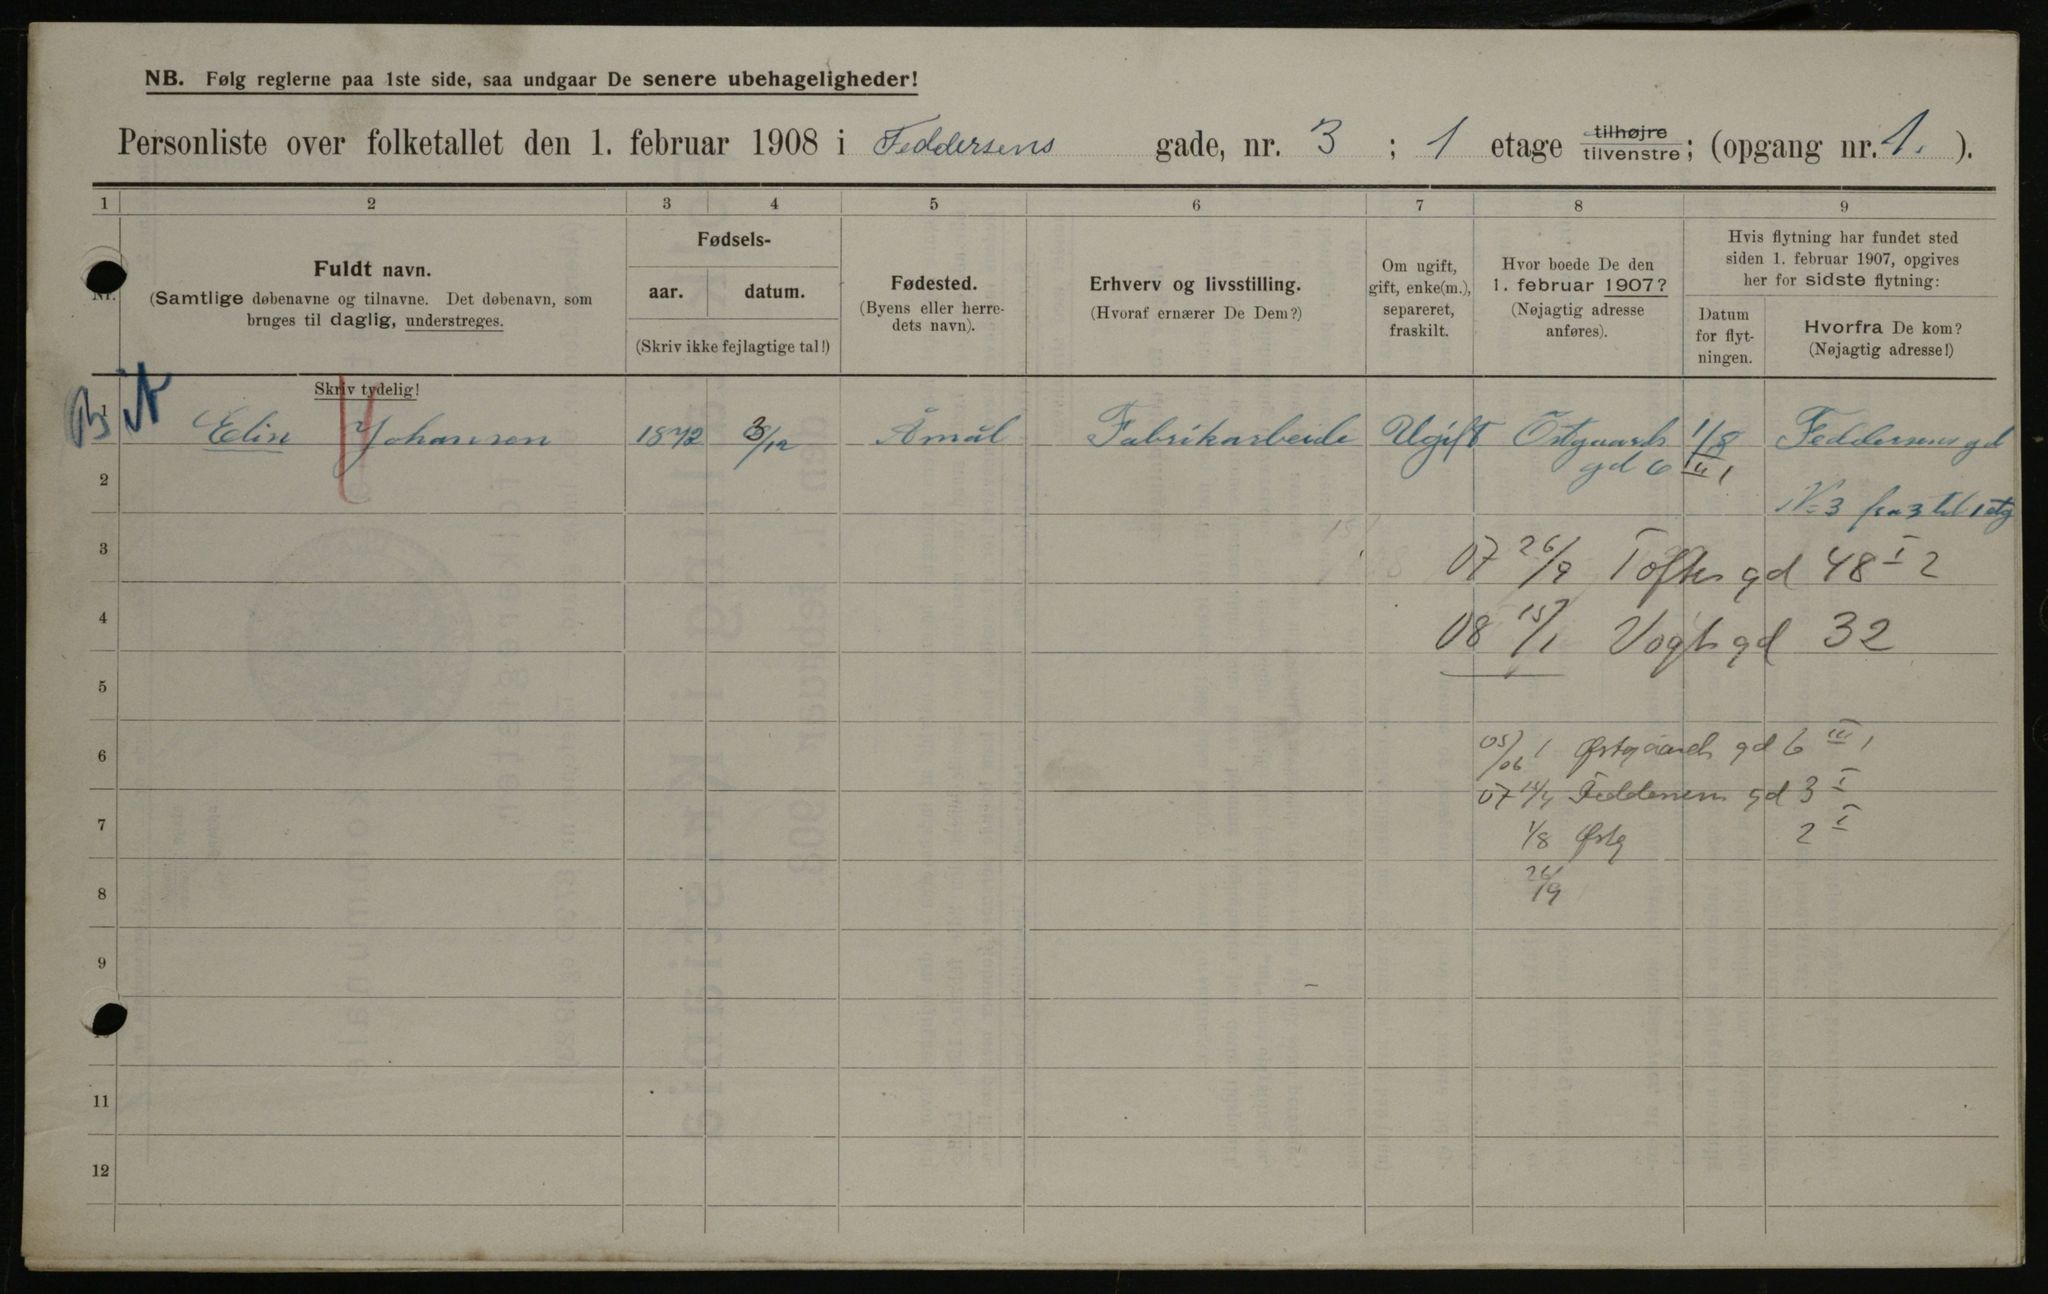 NB. Følg reglerne paa 1ste side, saa undgaar De senere ubehageligheder!
Personliste over folketallet den 1. februar 1908 i Feddersens gade, nr. 3 ; 1 etage tilhøjre tilvenstre; (opgang nr. 1. ).
1 2 3 4 5 6 7 8 9
Nr.
Fuldt navn.
(Samtlige døbenavne og tilnavne. Det døbenavn, som
bruges til daglig, understreges.
Skriv tydelig!
Fødsels-
aar. datum.
(Skriv ikke fejlagtige tal!)
Fødested.
(Byens eller herre-
dets navn).
Erhverv og livsstilling.
(Hvoraf ernærer De Dem?)
Om ugift,
gift, enke(m.),
separeret,
fraskilt.
Hvor boede De den
1. februar 1907?
(Nøjagtig adresse
anføres).
Hvis flytning har fundet sted
siden 1. februar 1907, opgives
her for sidste flytning:
Datum
for flyt-
ningen.
Hvorfra De kom?
(Nøjagtig adresse!)
1 Elin Johansen 1872 3/12 Åmål Fabrikarbeide Ugift Östgaards 1/8 Feddersens gd
gd 6 III 1
2
N=3 fra 3 til 1 etg
3 07 26/9 Toftes gd 48 I 2
4 08 15/1 Vogts gd 32
5
6 05/06 1 Østgaards gd 6 III 1
07 Feddersens gd 3 I
7 1/8 Østg 2 I
8 26/9
9
10
11
12